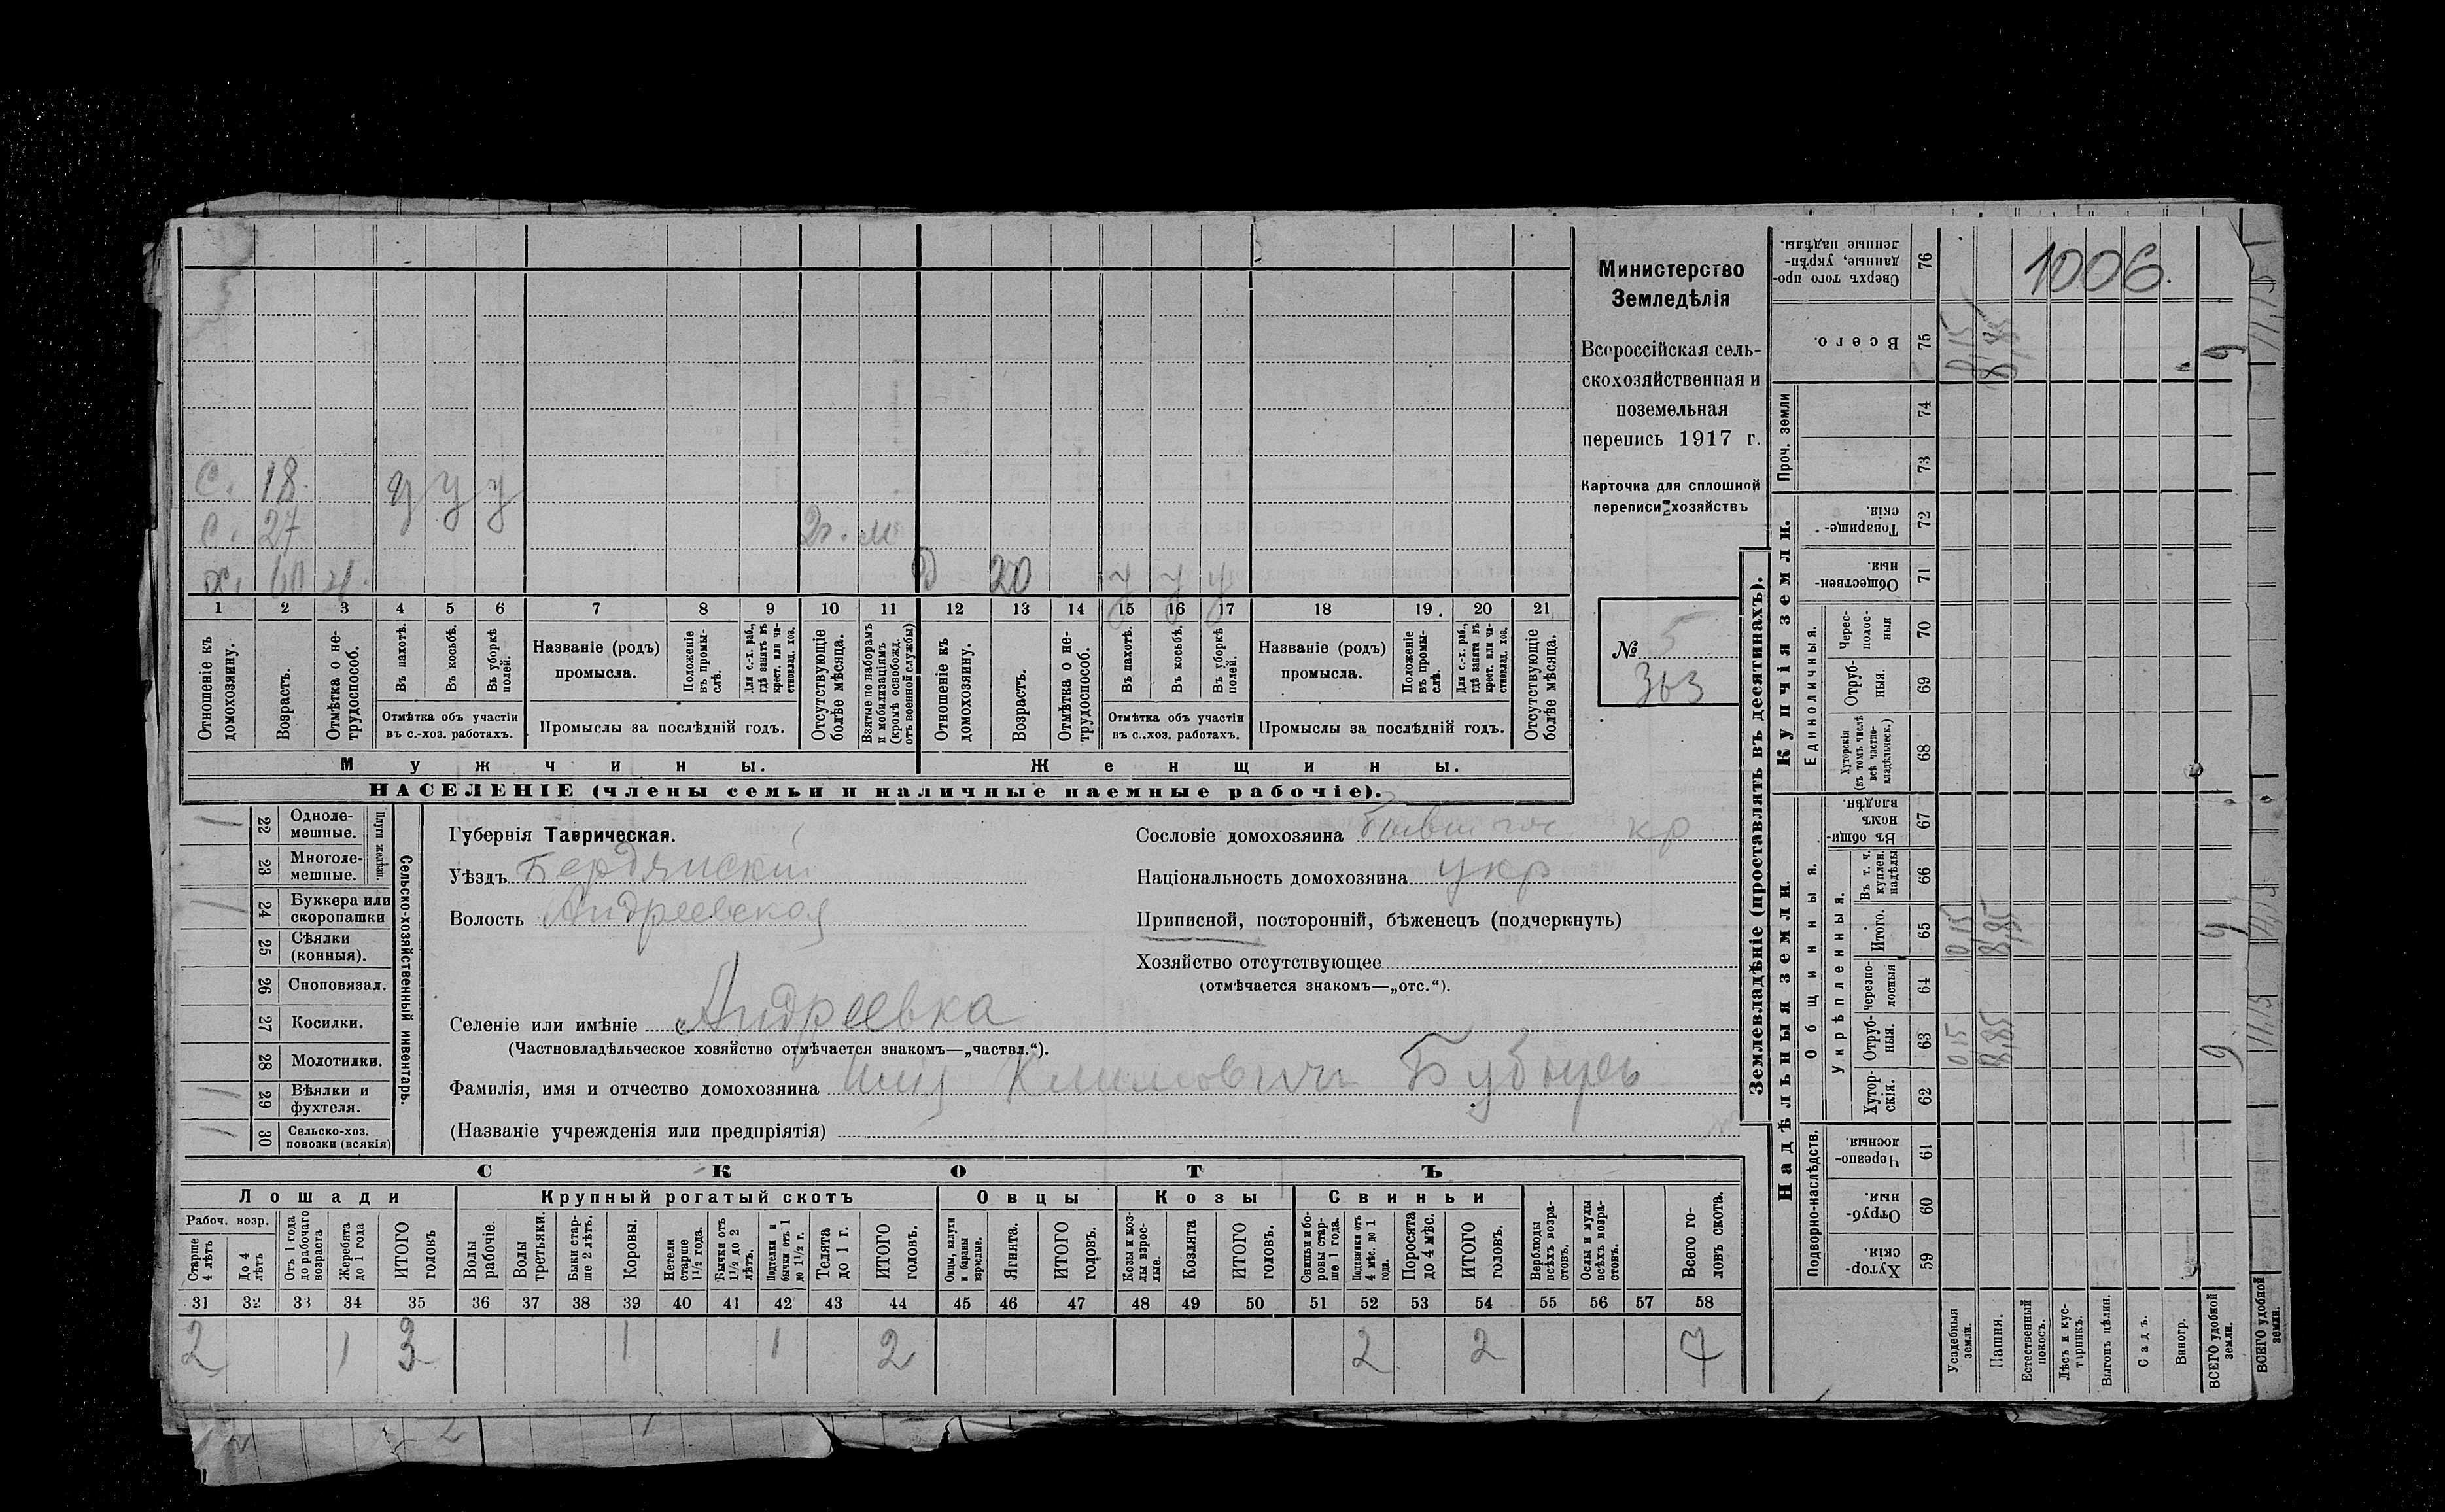 Министерство
Земледѣлія
Всероссійская сель-
скохозяйственная и
поземельная
перепись 1917 г.
Карточка для сплошной
переписи хозяйствъ
№ 5
363
1006.
с. 18. у у у
с. 27 м
х. 60 н. д 20 у у у
1 2 3 4 5 6 7 8 9 10 11 12 13 14 15 16 17 18 19. 20 21
Отношеніе къ домохозяину.
Возрастъ.
Отмѣтка о не-трудоспособ.
Въ пахотѣ.
Въ косьбѣ.
Въ уборкѣ полей.
Отмѣтка объ участіи
въ с.-хоз. работахъ.
Названіе (родъ)
промысла.
Положеніе въ промы-слѣ.
Для с.-х. раб., гдѣ занятъ въ крест. или ча-ствовлад. хоз.
Промыслы за послѣдній годъ.
Отсутствующіе болѣе мѣсяца.
Взятые по наборамъ и мобилизаціямъ (кромѣ освобожд. отъ военной службы)
Отношеніе къ домохозяину.
Возрастъ.
Отмѣтка о не-трудоспособ.
Въ пахотѣ.
Въ косьбѣ.
Въ уборкѣ полей.
Отмѣтка объ участіи
въ с..хоз. работахъ.
Названіе (родъ)
промысла.
Положеніе въ промы-слѣ.
Для с.-х. раб., гдѣ занята въ крест. или ча-ствовлад. хоз.
Промыслы за послѣдній годъ.
Отсутствующіе болѣе мѣсяца.
Мужчины. Женщины.
НАСЕЛЕНІЕ (члены семьи и наличные наемные рабочіе).
Сельско-хозяйственный инвентарь.
Плуги желѣзн.
1 22 Одноле-мешные.
23 Многоле-мешные.
1 24 Буккера или скоропашки
25 Сѣялки (конныя).
26 Сноповязал.
27 Косилки.
28 Молотилки.
1 29 Вѣялки и фухтеля.
1 30 Сельско-хоз. повозки (всякія)
Губернія Таврическая.
Уѣздъ Бердянскій
Волость Андреевская
Селеніе или имѣніе Андреевка
(Частновладѣльческое хозяйство отмѣчается знакомъ—„частвл.“).
Фамилія, имя и отчество домохозяина Климовичъ
(Названіе учрежденія или предпріятія)
Сословіе домохозяина Бывш гос кр
Національность домохозяина укр
Приписной, посторонній, бѣженецъ (подчеркнуть)
Хозяйство отсутствующее
(отмѣчается знакомъ—„отс.“).
СКОТЪ
Лошади Крупный рогатый скотъ Овцы Козы Свиньи
Рабоч. возр.
Старше 4 лѣтъ
До 4 лѣтъ
Отъ 1 года до рабочаго возраста
Жеребята до 1 года
ИТОГО головъ
Волы рабочіе.
Волы третьяки.
Быки стар-ше 2 лѣтъ.
Коровы.
Нетели старше 1½ года.
Бычки отъ 1½ до 2 лѣтъ.
Подтелки и бычки отъ 1 до 1½ г.
Телята до 1 г.
ИТОГО головъ.
Овцы, валухи и бараны взрослые.
Ягнята.
ИТОГО головъ.
Козы и коз-лы взрос-лые.
Козлята
ИТОГО головъ.
Свиньи и бо-ровы стар-ше 1 года.
Подсвинки отъ 4 мѣс. до 1 года.
Поросята до 4 мѣс.
ИТОГО головъ.
Верблюды всѣхъ возра-стовъ.
Ослы и мулы всѣхъ возра-стовъ.
Всего го-ловъ скота.
31 32 33 34 35 36 37 38 39 40 41 42 43 44 45 46 47 48 49 50 51 52 53 54 55 56 57 58
2 1 3 1 1 2 2 2 7
Землевладѣніе (проставлять въ десятинахъ).
Купчія земли.
Надѣльныя земли.
Сверхъ того про-данные, укрѣп-ленные надѣлы. 76
Всего. 75 0,15 8,85 9
Проч. земли 74
73
Товарище-скія. 72
Обществен-ныя. 71
Единоличныя.
Черес-полос-ныя 70
Отруб-ныя. 69
Хуторскія (въ томъ числѣ всѣ частно-владѣльческ.) 68
Общинныя.
Въ общи-номъ владѣн. 67
Укрѣпленныя.
Въ т. ч. куплен. надѣлы 66
Итого. 65 0,15 8,85 9
Черезпо-лосныя 64
Отруб-ныя. 63 0,15 8,85 9
Хутор-скія. 62
Подворно-наслѣдств.
Черезпо-лосныя. 61
Отруб-ныя. 60
Хутор-скія. 59
Усадебныя земли.
Пашня.
Естественный покосъ.
Лѣсъ и кус-тарникъ.
Выгонъ цѣлин.
Садъ.
Виногр.
ВСЕГО удобной земли.
ВСЕГО удобной земли.
11,15
11,15